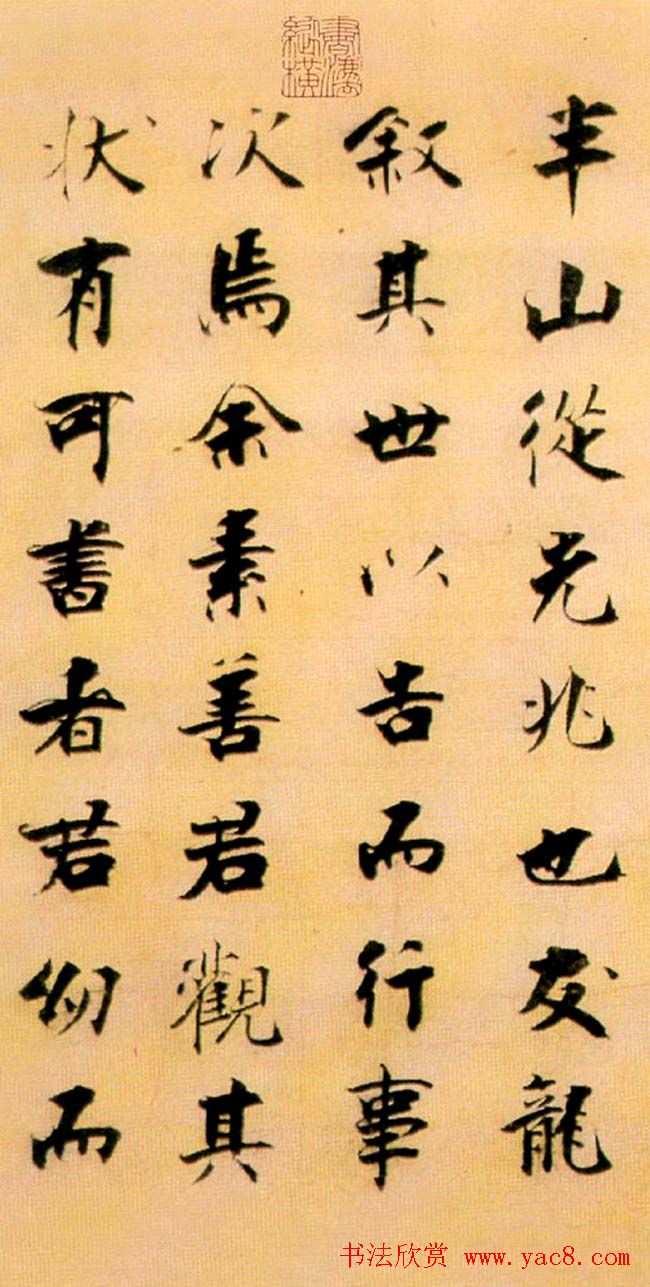 書灋縱橫
半山從先兆也友龍
叙其世以告而行事
次焉余素善君觀其
狀有可書者君幼而
书法欣赏 www.yac8.com